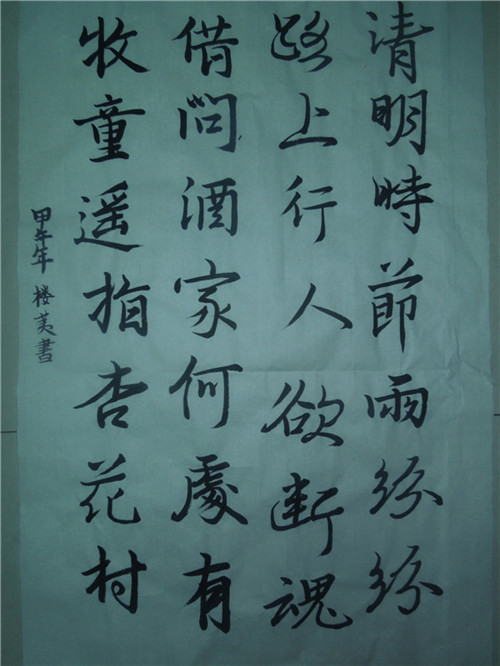 清明時節雨紛紛
路上行人欲断魂
借問酒家何處有
牧童遥指杏花村
甲午年 楼美書